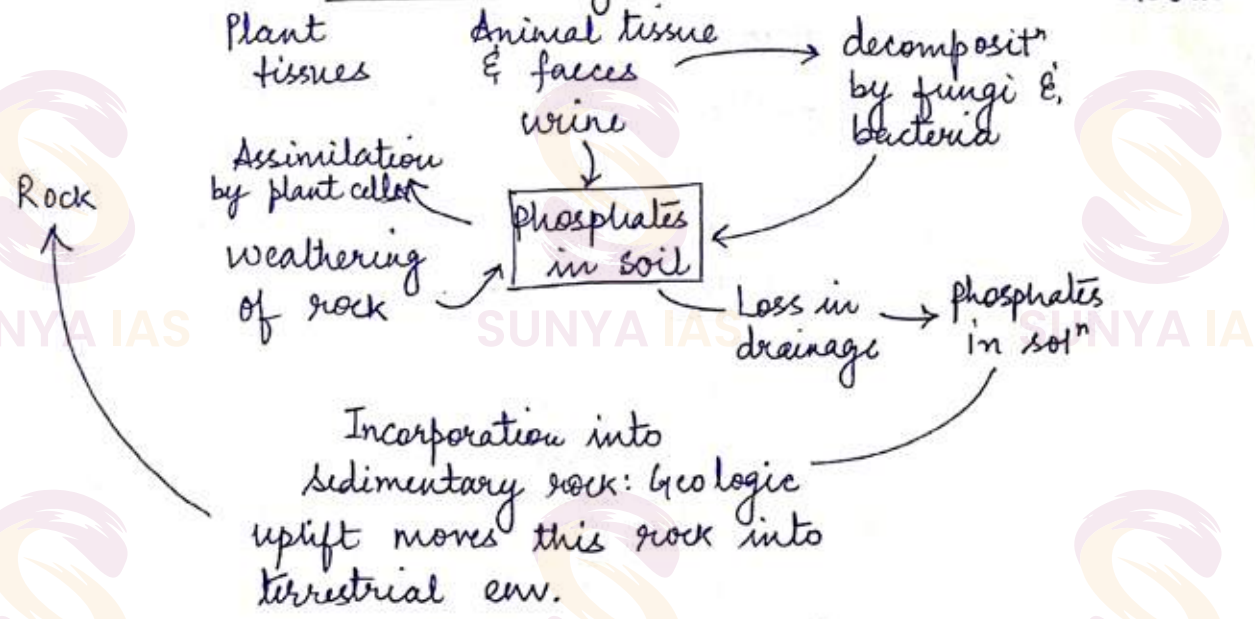 Plant
tissues
Animal tissue
& faeces
urine
decompositⁿ
by fungi &
bacteria
Assimilation
by plant cells
Rock
phosphates
in soil
weathering
of rock
Loss in
drainage
phosphates
in solⁿ
Incorporation into
sedimentary rock: Geologic
uplift moves this rock into
terrestrial env.
NYA IAS
SUNYA IAS
SUNYA IA